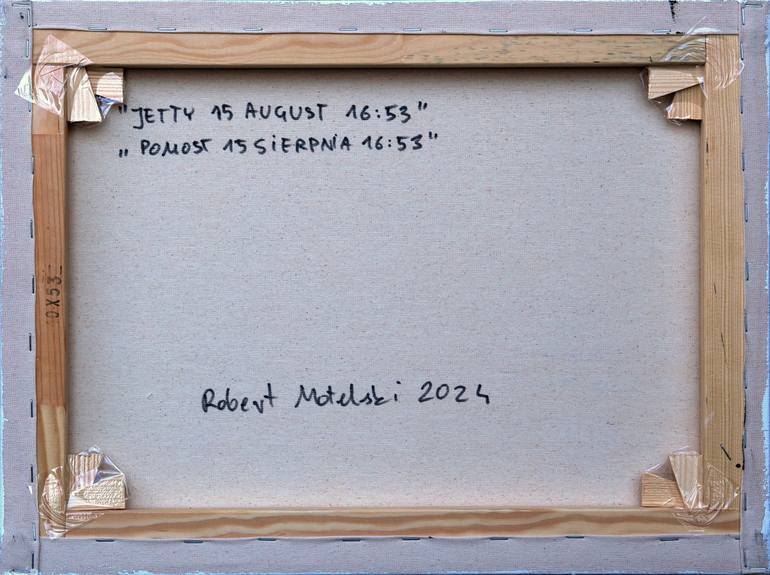 "JETTY 15 AUGUST 16:53"
„POMOST 15 SIERPNIA 16:53"
0X53
Robert Motelski 2024